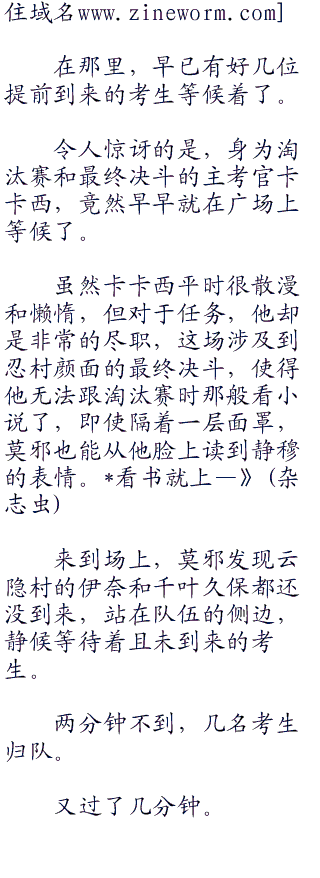 住域名www.zineworm.com]
在那里，早已有好几位
提前到来的考生等候着了。
令人惊讶的是，身为淘
汰赛和最终决斗的主考官卡
卡西，竟然早早就在广场上
等候了。
虽然卡卡西平时很散漫
和懒惰，但对于任务，他却
是非常的尽职，这场涉及到
忍村颜面的最终决斗，使得
他无法跟淘汰赛时那般看小
说了，即使隔着一层面罩，
莫邪也能从他脸上读到静穆
的表情。*看书就上—》(杂
志虫)
来到场上，莫邪发现云
隐村的伊奈和千叶久保都还
没到来，站在队伍的侧边，
静候等待着且未到来的考
生。
两分钟不到，几名考生
归队。
又过了几分钟。